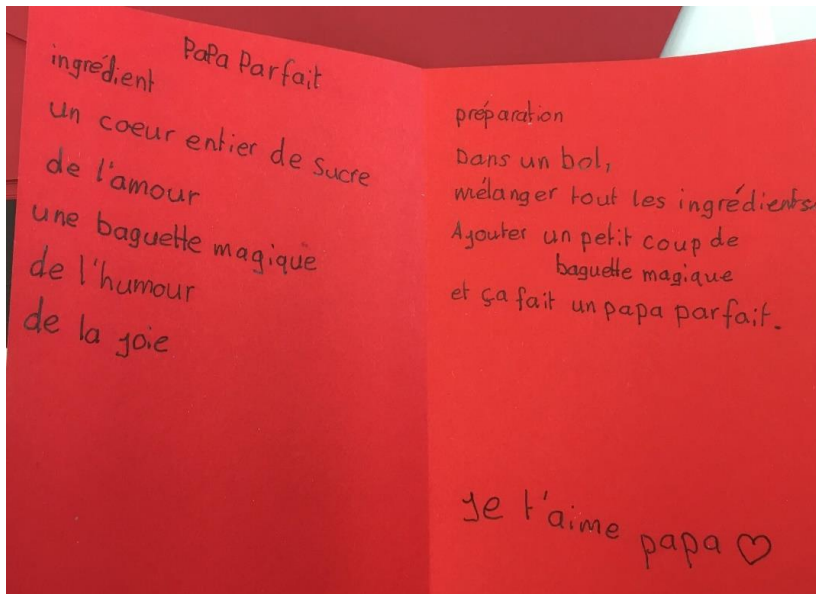 PaPa Parfait
ingrédient
un coeur entier de sucre
de l'amour
une baguette magique
de l'humour
de la joie
préparation
Dans un bol,
mélanger tout les ingrédients.
Ajouter un petit coup de
baguette magique
et ça fait un papa parfait.
Je t'aime papa ♡